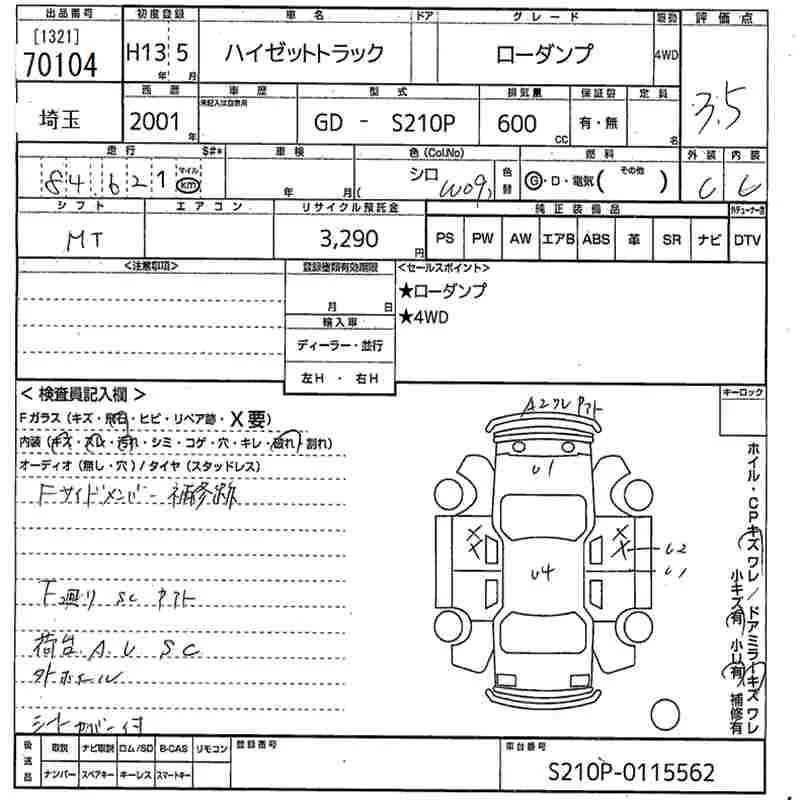 出品番号 初度登録 車名 ドア グレード 駆動 評価点
[1321]
70104 H13 5 ハイゼットトラック ローダンプ 4WD 3.5
年 月
埼玉 西暦 車歴 型式 排気量 保証書 定員
未記入は自家用
2001年 GD - S210P 600 CC 有・無 名
走行 S#* 車検 色(Col.No) 燃料 外装 内装
84,621 マイル km 年 月 シロ W09 色替 G・D・電気( その他 ) C C
シフト エアコン リサイクル預託金 純正装備品
MT 3,290円 PS PW AW エアB ABS 革 SR ナビ DTV
<注意事項> 登録書類有効期限 <セールスポイント>
月 日 ★ローダンプ
輸入車 ★4WD
ディーラー・並行
左H ・ 右H
<検査員記入欄> キーロック
Fガラス(キズ・飛石・ヒビ・リペア跡・X要)
内装(キズ・スレ・汚れ・シミ・コゲ・穴・キレ・破れ・割れ)
オーディオ(無し・穴)/タイヤ(スタッドレス)
Fサイドメンバー補修跡
F廻り SC
荷台 A.U SC
外ホール
シートカバー付
U1
X X
X X U2
U4 U1
ホイル・CPキズ ワレ/ドアミラーキズ ワレ
小キズ有 小U有 補修有
後送品 取説 ナビ取説 ロム/SD B-CAS リモコン 登録番号 車台番号
ナンバー スペアキー キーレス スマートキー S210P-0115562